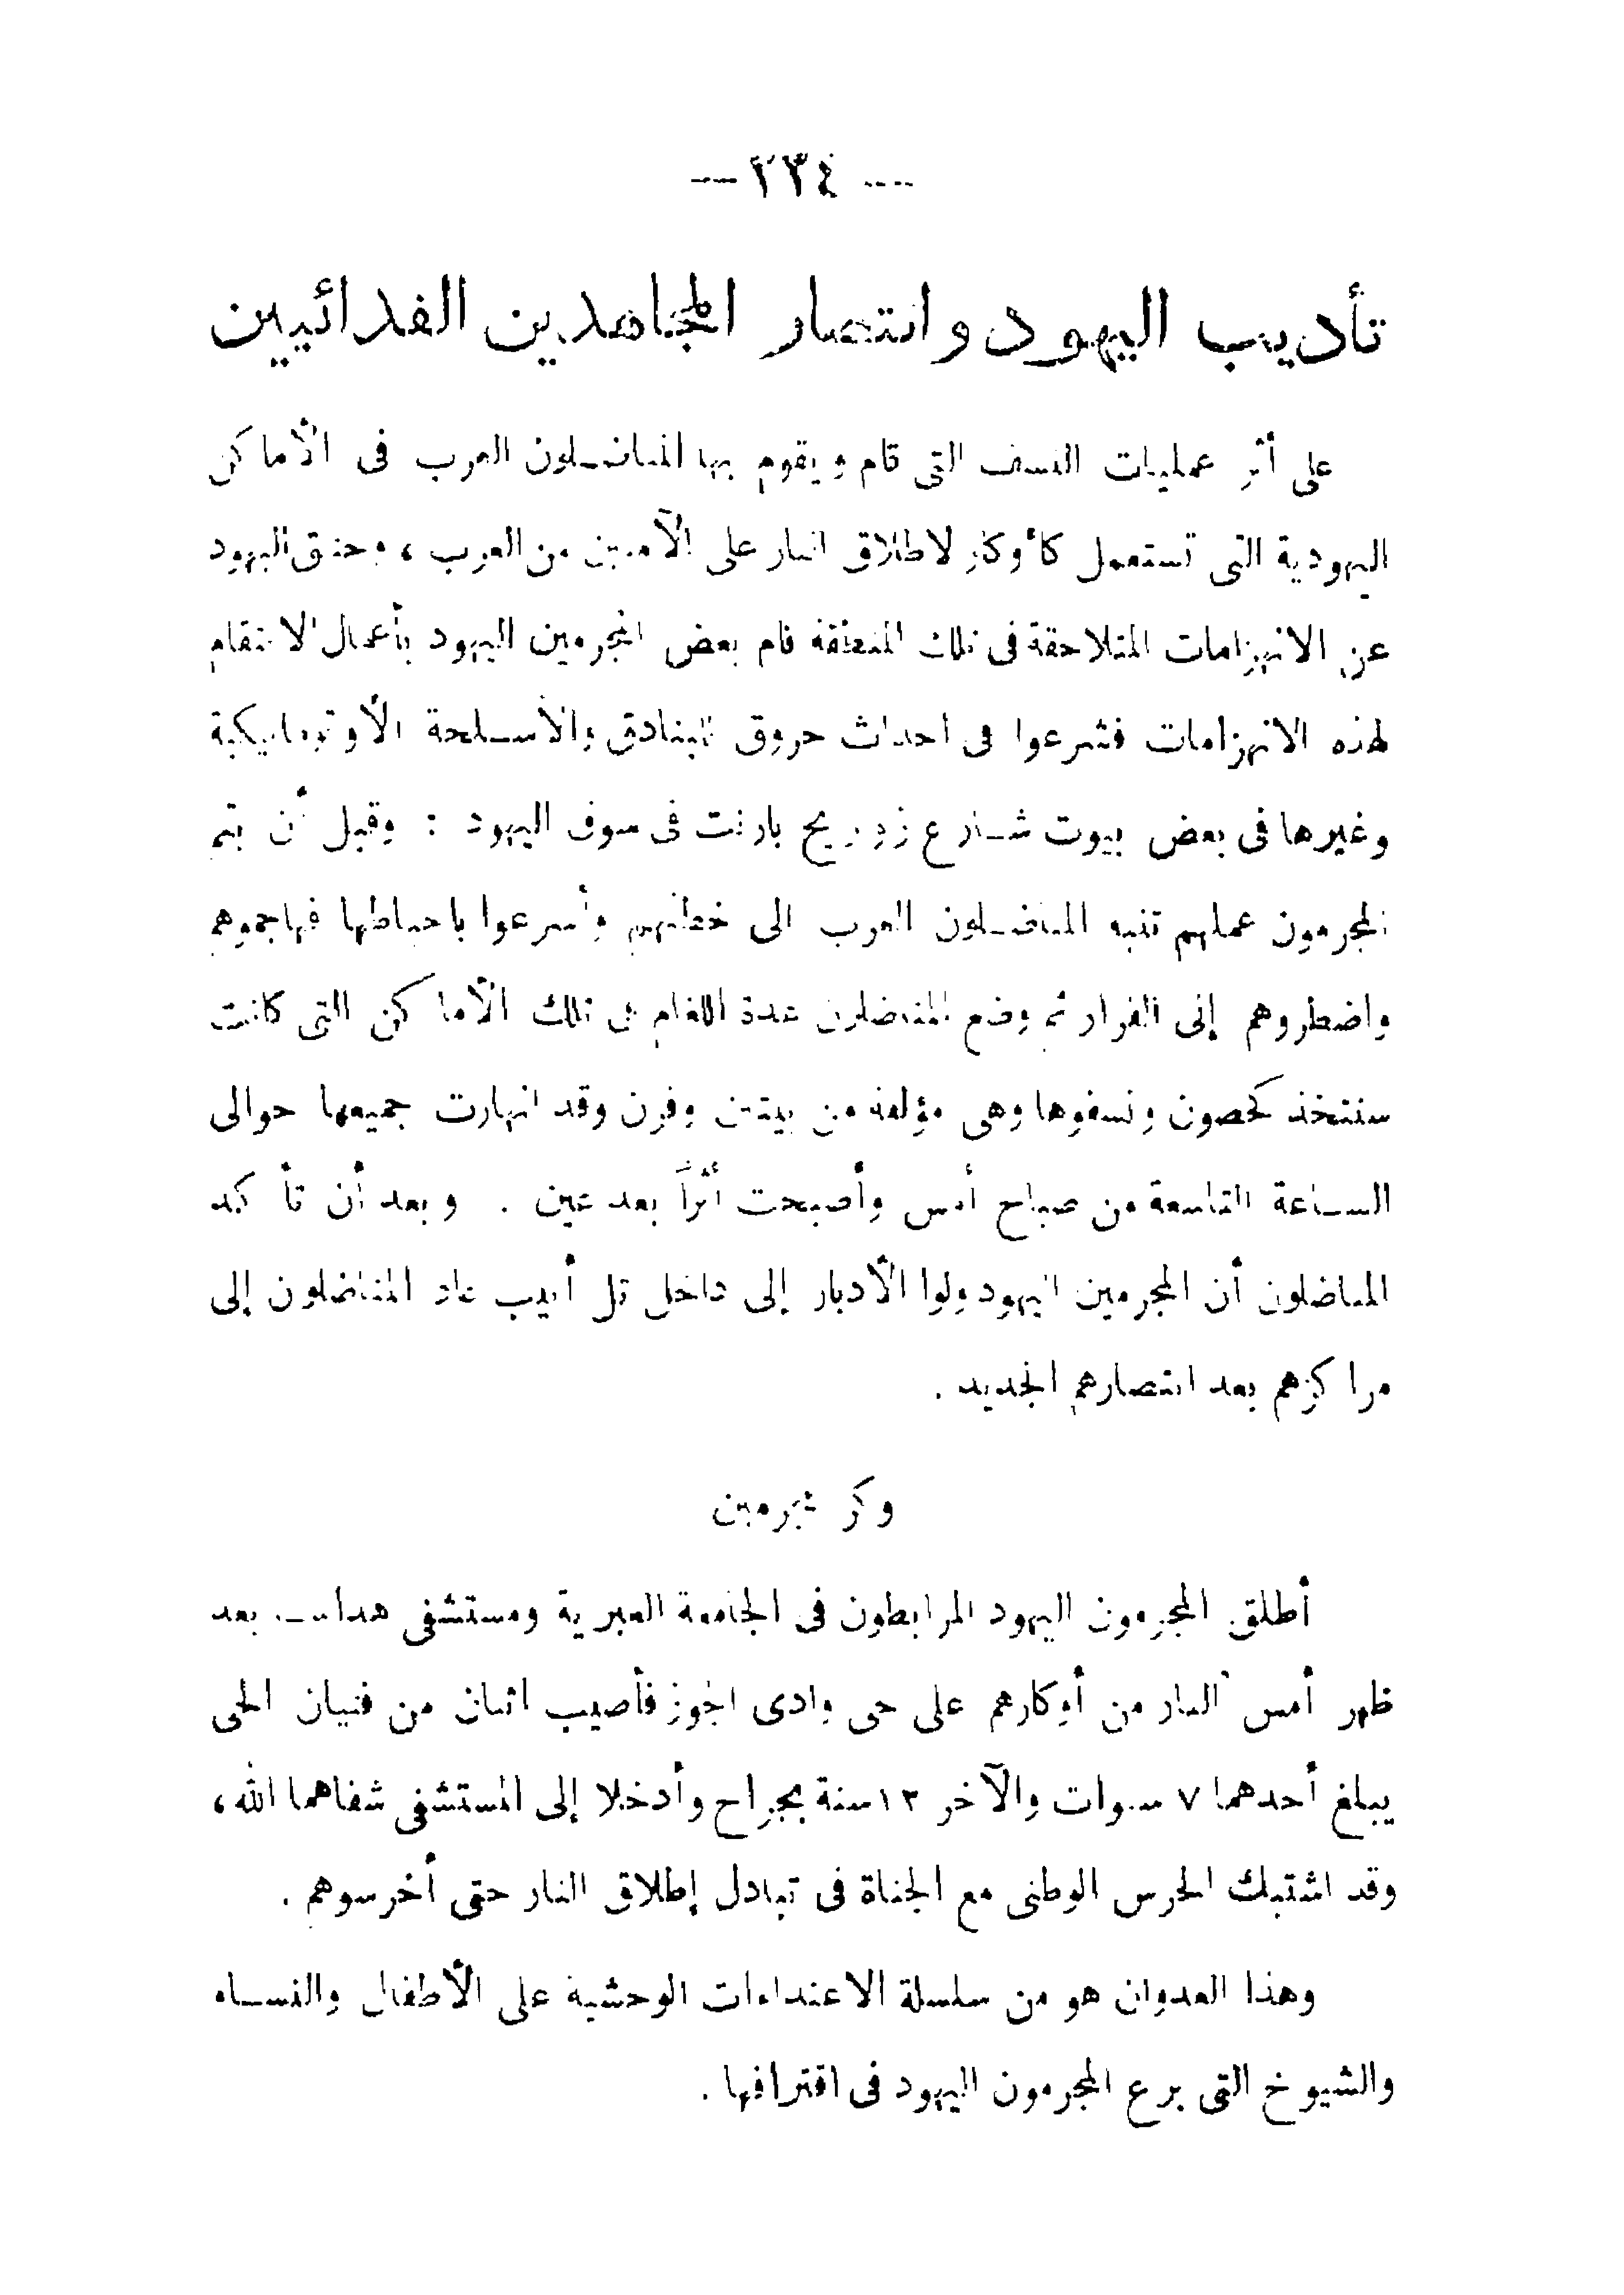 — ٢٣٤ —
تأديب اليهود وانتصار المجاهدين الفدائيين
على أثر عمليات النسف التى قام ويقوم بها المناضلون العرب فى الأماكن
اليهودية التى تستعمل كأوكار لاطلاق النار على الآمنين من العرب ، وحنق اليهود
عن الانهزامات المتلاحقة فى تلك المنطقة قام بعض المجرمين اليهود بأعمال الانتقام
لهذه الانهزامات فشرعوا فى احداث حروق للبنادق والأسلحة الأوتوماتيكية
وغيرها فى بعض بيوت شارع بارنت فى سوق اليهود : وقبل أن يتم
المجرمون عملهم تنبه المناضلون العرب الى خطتهم وأسرعوا باحباطها فهاجموهم
واضطروهم إلى الفرار ثم وضع المناضلون عدة الغام فى تلك الأماكن التى كانت
ستتخذ كحصون ونسفوها وهى مؤلفة من بيتين وفرن وقد انهارت جميعها حوالى
الساعة التاسعة من صباح أمس وأصبحت أثراً بعد عين . وبعد أن تأكد
المناضلون أن المجرمين اليهود ولوا الأدبار إلى داخل تل أبيب عاد المناضلون إلى
مراكزهم بعد انتصارهم الجديد .
وكر مجرمين
أطلق المجرمون اليهود المرابطون فى الجامعة العبرية ومستشفى هداسا بعد
ظهر أمس النار من أوكارهم على حى وادى الجوز فأصيب اثنان من فتيان الحى
يبلغ أحدهما ٧ سنوات والآخر ١٣ سنة بجراح وأدخلا إلى المستشفى شفاهما الله ،
وقد اشتبك الحرس الوطنى مع الجناة فى تبادل إطلاق النار حتى أخرسوهم .
وهذا العدوان هو من سلسلة الاعتداءات الوحشية على الأطفال والنساء
والشيوخ التى برع المجرمون اليهود فى اقترافها .